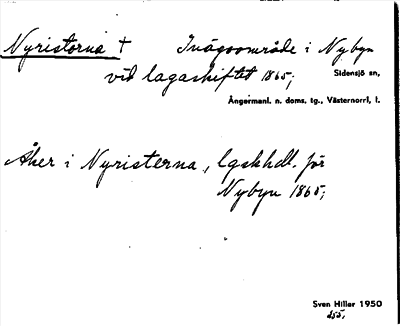 Nyristorna † Inägoområde i Nybyn
vid lagaskiftet 1865;
Sidensjö sn,
Ångermanl. n. doms. tg., Västernorrl, l.
Åker i Nyristerna, lgskhdl. för
Nybyn 1865;
Sven Hiller 1950